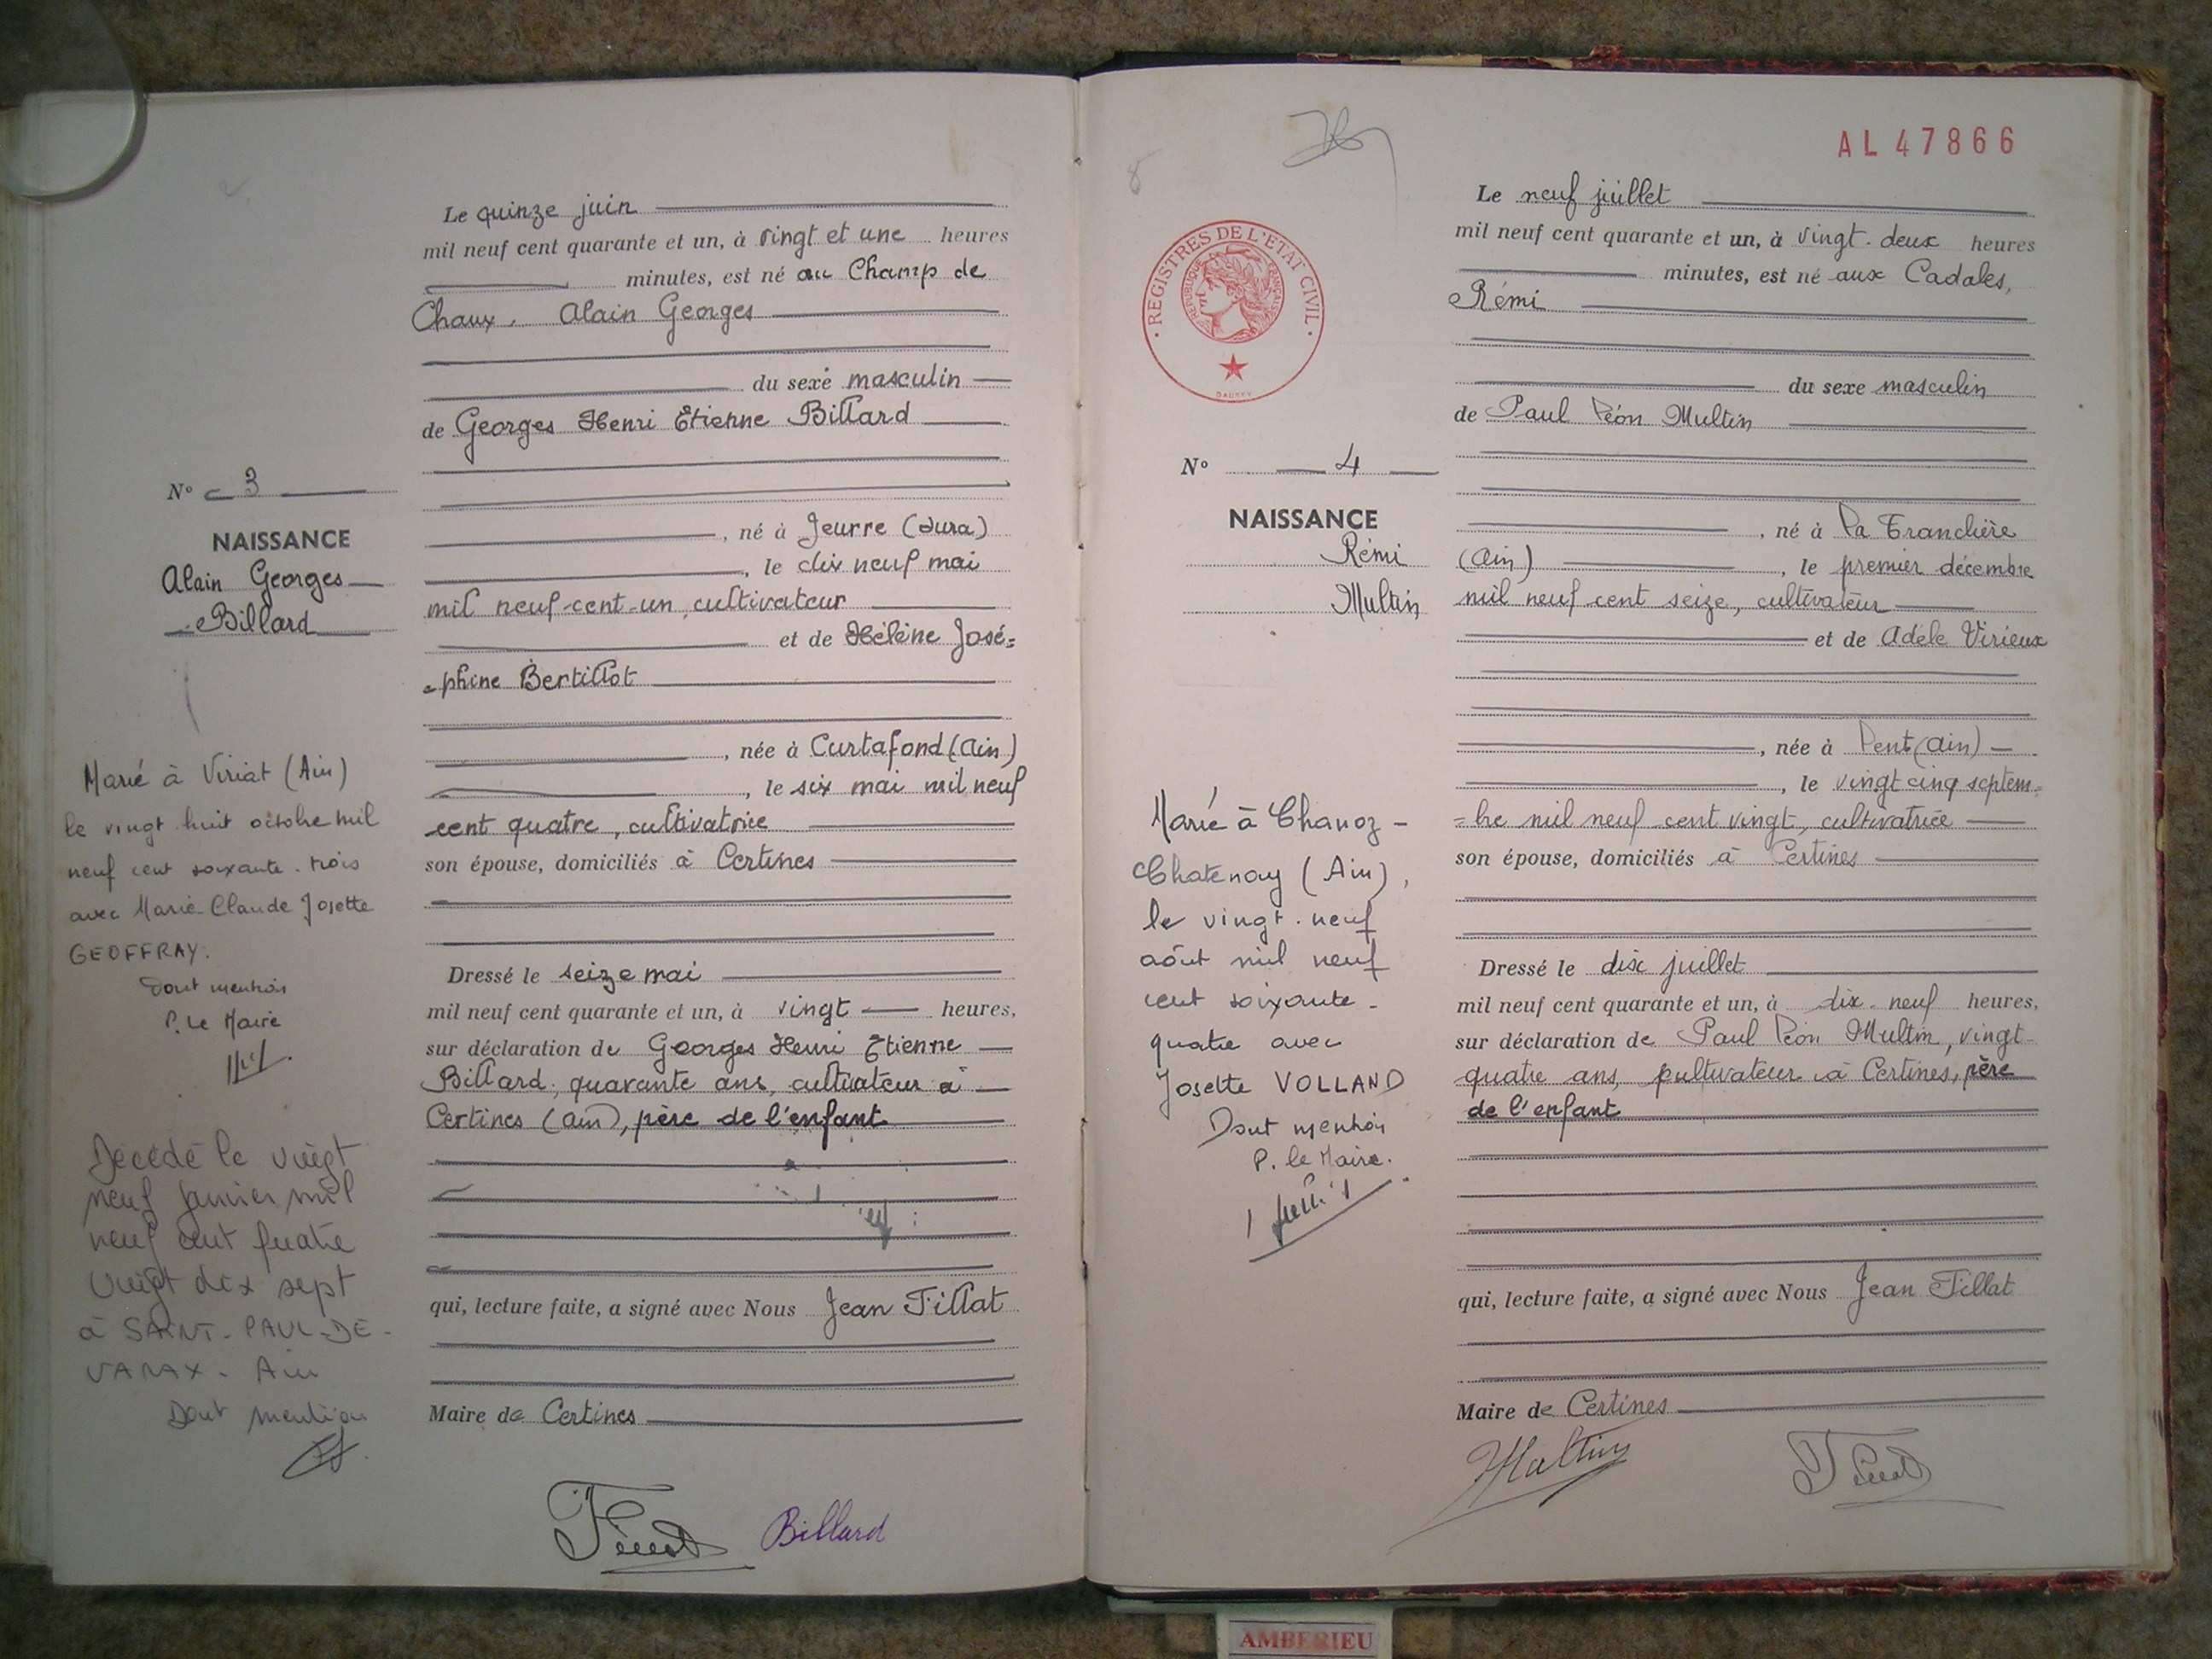 Le quinze juin
mil neuf cent quarante et un, à vingt et une heures
minutes, est né au Champ de
Chaux, Alain Georges
du sexe masculin
de Georges Henri Etienne Billard
N° 3
NAISSANCE
Alain Georges
Billard
, né à Jeurre (Jura)
, le dix neuf mai
mil neuf-cent-un, cultivateur
et de Hélène José=
=phine Bertillot
, née à Curtafond (Ain)
, le six mai mil neuf
cent quatre, cultivatrice
son épouse, domiciliés à Certines
Dressé le seize mai
mil neuf cent quarante et un, à vingt heures,
sur déclaration de Georges Henri Etienne
Billard, quarante ans, cultivateur à
Certines (Ain), père de l'enfant
qui, lecture faite, a signé avec Nous Jean Tillat
Maire de Certines
Billard
Marié à Viriat (Ain)
le vingt huit octobre mil
neuf cent soixante-trois
avec Marie Claude Josette
GEOFFRAY.
Dont mention
P. Le Maire
Décédé le vingt
neuf janvier mil
neuf cent quatre
vingt dix sept
à SAINT-PAUL-DE-
VARAX - Ain
Dont mention
8
AL 47866
REGISTRES DE L'ETAT CIVIL
REPUBLIQUE FRANÇAISE
Le neuf juillet
mil neuf cent quarante et un, à vingt-deux heures
minutes, est né aux Cadales,
Rémi
du sexe masculin
de Paul Léon Multin
N° 4
NAISSANCE
Rémi
Multin
, né à La Tranclière
(Ain) , le premier décembre
mil neuf cent seize, cultivateur
et de Adèle Virieux
, née à Lent (Ain)
, le vingt cinq septem=
=bre mil neuf cent vingt, cultivatrice
son épouse, domiciliés à Certines
Dressé le dix juillet
mil neuf cent quarante et un, à dix-neuf heures,
sur déclaration de Paul Léon Multin, vingt-
quatre ans, cultivateur à Certines, père
de l'enfant
qui, lecture faite, a signé avec Nous Jean Tillat
Maire de Certines
Multin
Marié à Chanoz-
Chatenay (Ain),
le vingt-neuf
août mil neuf
cent soixante-
quatre avec
Josette VOLLAND
Dont mention
P. le Maire.
AMBERIEU